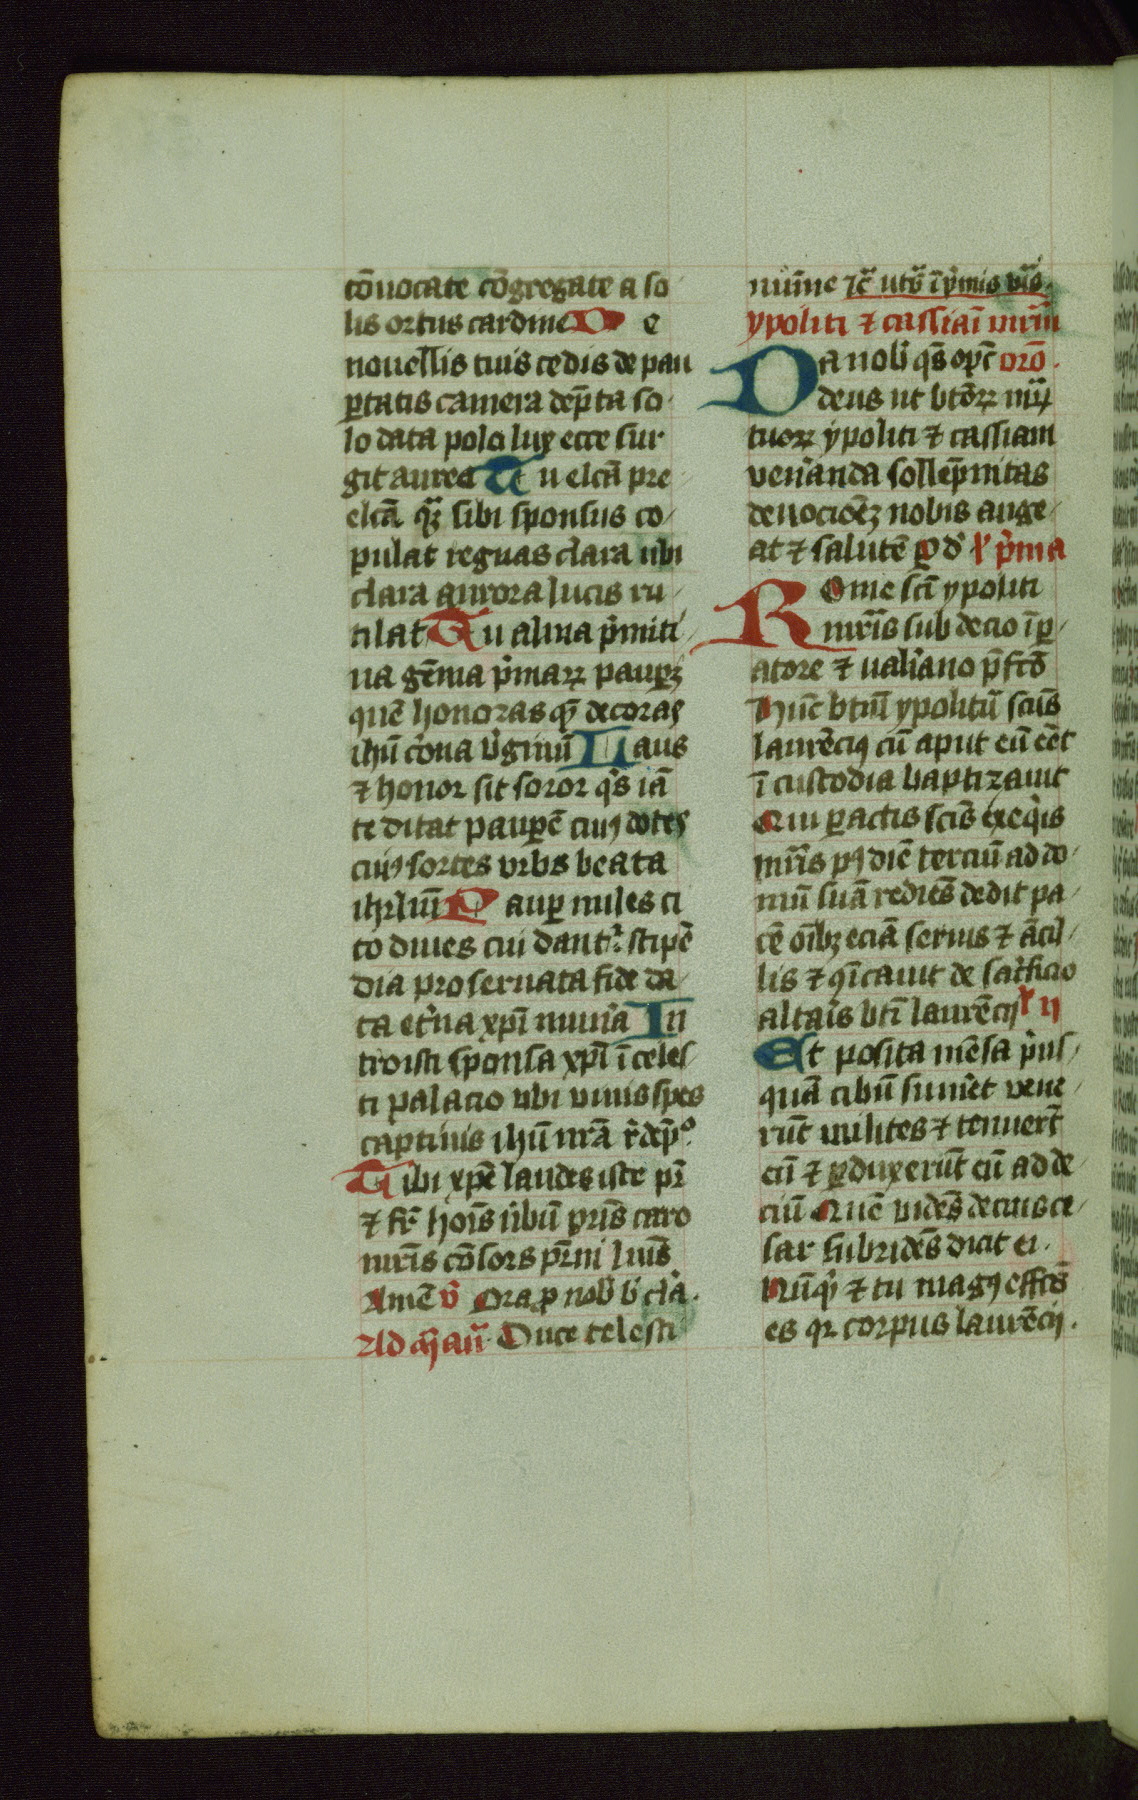 cōuocate cōgregate a so
lis ortus cardine D e
nouellis tuis cedis de pau
ꝑtatis camera dep̄ta so
lo data polo lux ecce sur
git aurea Tu elcā pre
elcā qꝫ sibi sponsus co
pulat regnas clara ubi
clara aurora lucis ru
tilat Tu alma p̄miti
ua gēma p̄maꝝ pauꝑꝫ
quē honoras qꝫ decoras
ihū corōa v̓ginū Laus
⁊ honor sit soror q̄s iā
te ditat pauꝑē cui⁹ dotes
cui⁹ sortes vrbs beata
ihrlm̄ Pauꝑ miles ci
to diues cui dant᷑ stipē
dia pro seruata fide da
ta et̓na xp̄i mun̓a In
troisti sponsa xp̄i ī celes
ti palacio ubi viuis spes
captiuis ihū nrā r̓dēp̄º
Tibi xp̄e laudes iste pr̄
⁊ fr̄ hoīs v̓bū pr̄is caro
mr̄is cōsors pr̄ni lūis
Amē v̓ Ora ꝓ nob̓ b̓ cl̓a.
Ad m̄ an̄ Duce celesti
numīe ic̄ utꝰ ī p̓mis vīs.
ypoliti ⁊ cassiaī mr̄m
Da nob̓ q̄s op̄c orō.
deus ut btōꝝ mr̄
tuoꝝ ypoliti ⁊ cassiani
ven̓anda sollēpnitas
deuociōēꝫ nobis auge
at ⁊ salutē ꝑ d̓ l̓ p̓ma
Rome scī ypoliti
mr̄is sub decio īꝑ
atore ⁊ ual̓iano p̄fcō
Hūc btm̄ ypolitū scūs
laurēci⁹ cū aput eū eēt
ī custodia baptizauit
Qui ꝑactis scīs exeq̓is
mr̄is p⁹ diē terciū ad do
mū suā rediēs dedit pa
cē oībꝫ eciā seruis ⁊ ācil
lis ⁊ ꝯīcauit de sac̓ficio
altaris btī laurēcij l̓ ij
Est posita mēsa p̓us
quā cibū sum̓et vene
rūt milites ⁊ tenuerūt
eū ⁊ ꝑduxerūt eū ad de
ciū Quē vidēs decius ce
sar subridēs dicit ei.
Nūq̓ ⁊ tu mag⁹ effcūs
es qꝛ corpus laurēcij.